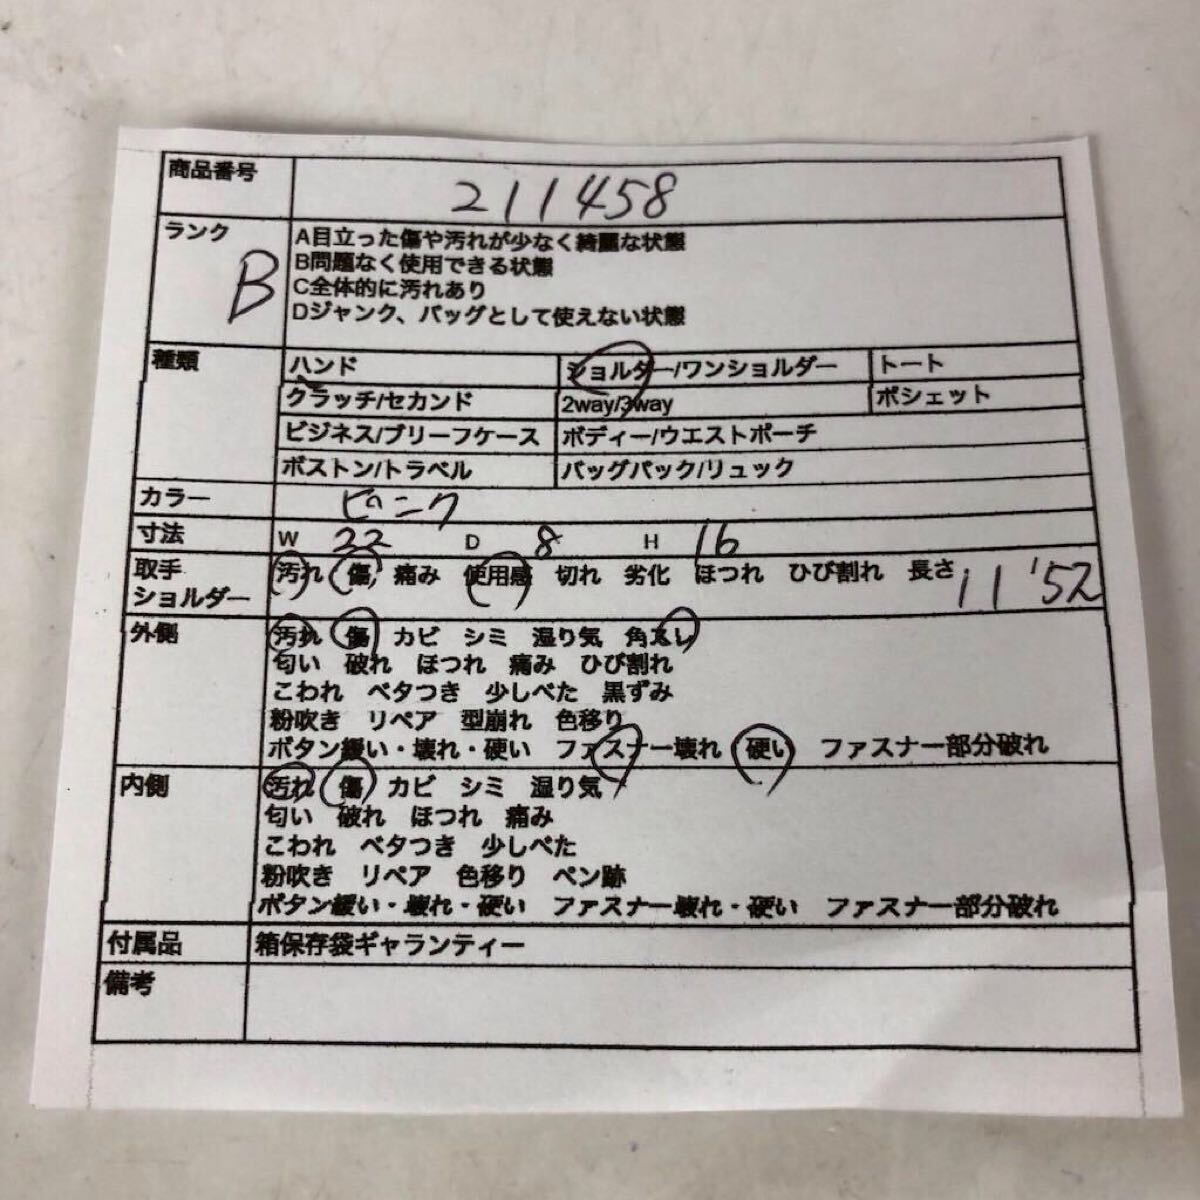 商品番号 211458
ランク B
A目立った傷や汚れが少なく綺麗な状態
B問題なく使用できる状態
C全体的に汚れあり
Dジャンク、バッグとして使えない状態
種類 ハンド ショルダー/ワンショルダー トート
クラッチ/セカンド 2way/3way ポシェット
ビジネス/ブリーフケース ボディー/ウエストポーチ
ボストン/トラベル バッグパック/リュック
カラー ピンク
寸法 W 22 D 8 H 16
取手 汚れ 傷 痛み 使用感 切れ 劣化 ほつれ ひび割れ 長さ 11 '52
ショルダー
外側 汚れ 傷 カビ シミ 湿り気 角スレ
匂い 破れ ほつれ 痛み ひび割れ
こわれ ベタつき 少しべた 黒ずみ
粉吹き リペア 型崩れ 色移り
ボタン緩い・壊れ・硬い ファスナー壊れ 硬い ファスナー部分破れ
内側 汚れ 傷 カビ シミ 湿り気
匂い 破れ ほつれ 痛み
こわれ ベタつき 少しべた
粉吹き リペア 色移り ペン跡
ボタン緩い・壊れ・硬い ファスナー壊れ・硬い ファスナー部分破れ
付属品 箱保存袋ギャランティー
備考